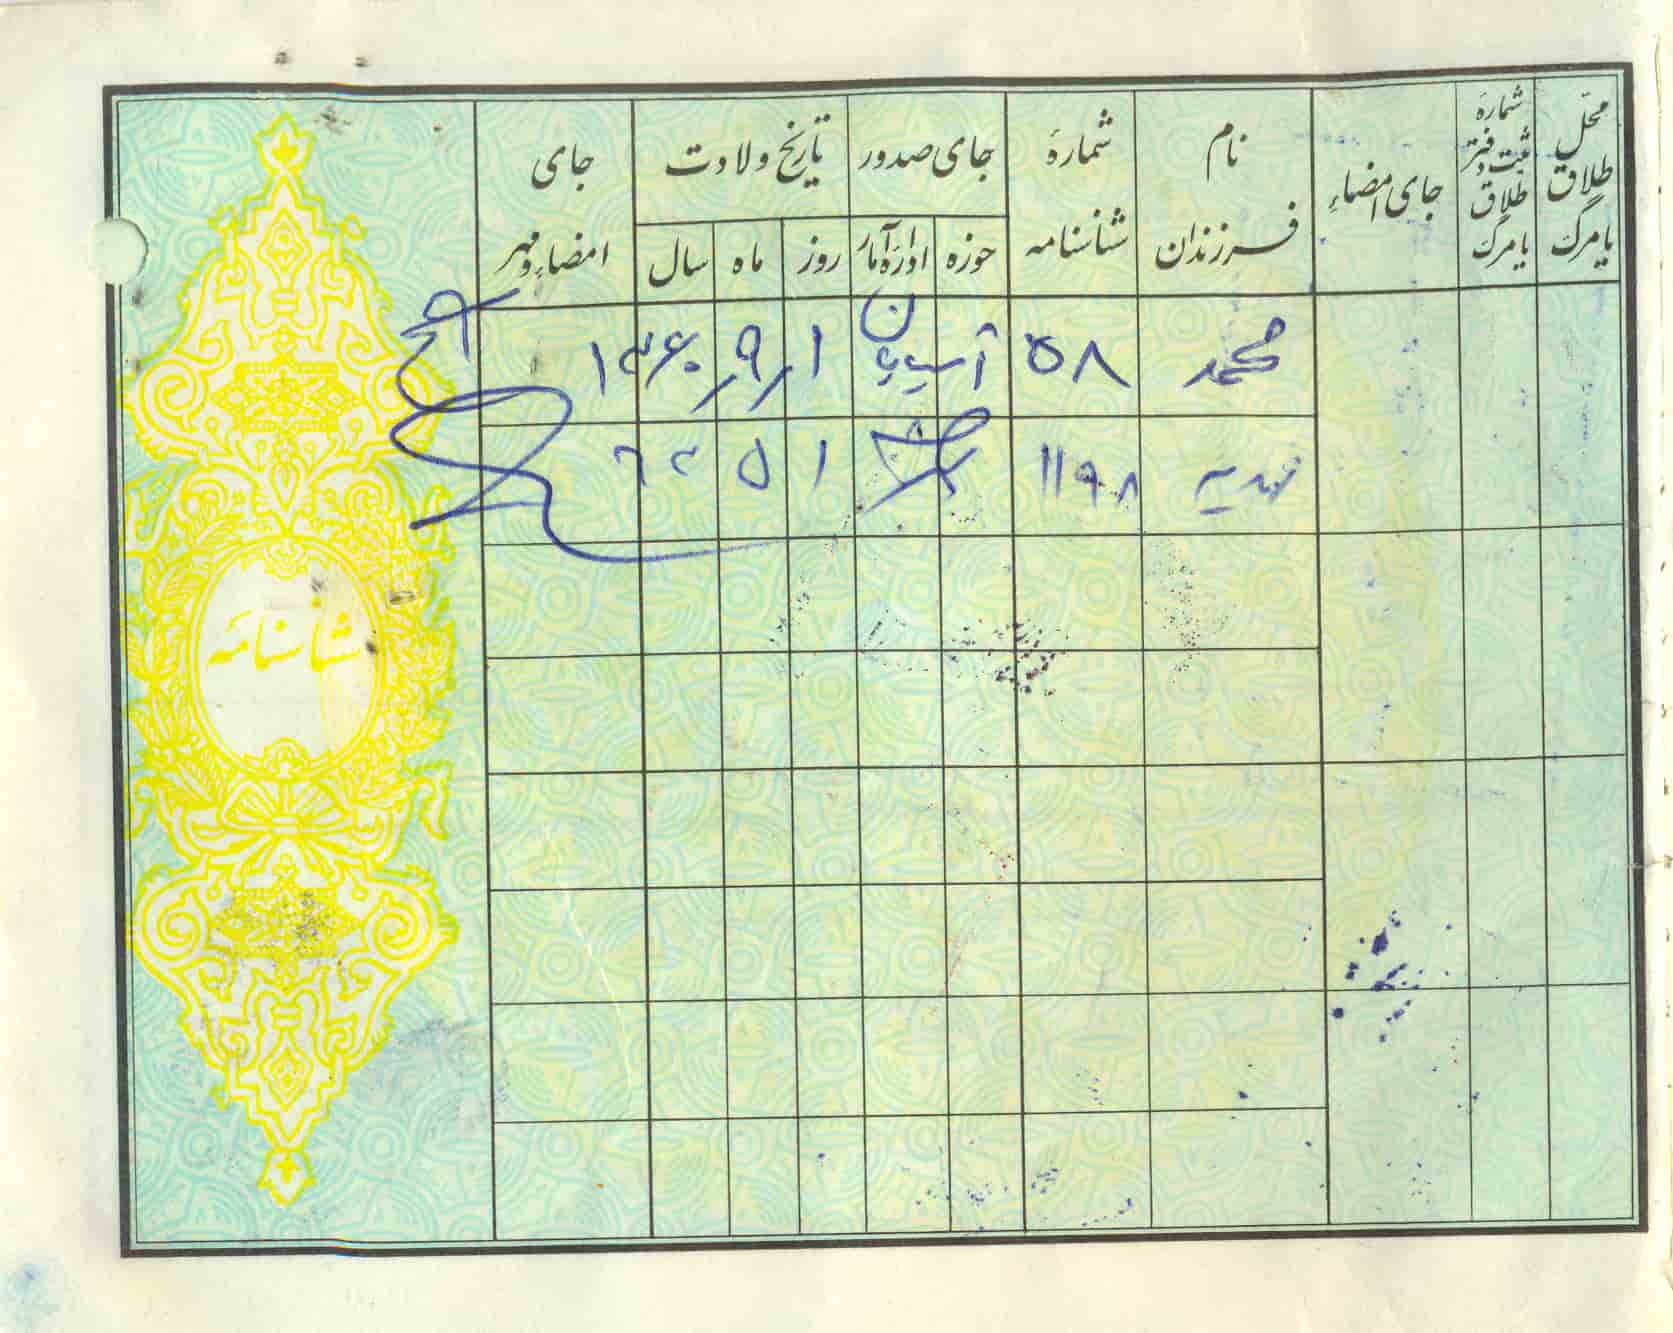 محلّ طلاق یا مرگ
شمارهٔ ثبت دفتر طلاق یا مرگ
جای امضاء
نام فرزندان
شمارهٔ شناسنامه
جای صدور
حوزه
ادارهٔ آمار
تاریخ ولادت
روز
ماه
سال
جای امضاء و مهر
محمد ۵۸ ۱ / ۹ / ۱۳۶۰
۱۱۹۸ ۱ ۵ ۶۲
شناسنامه